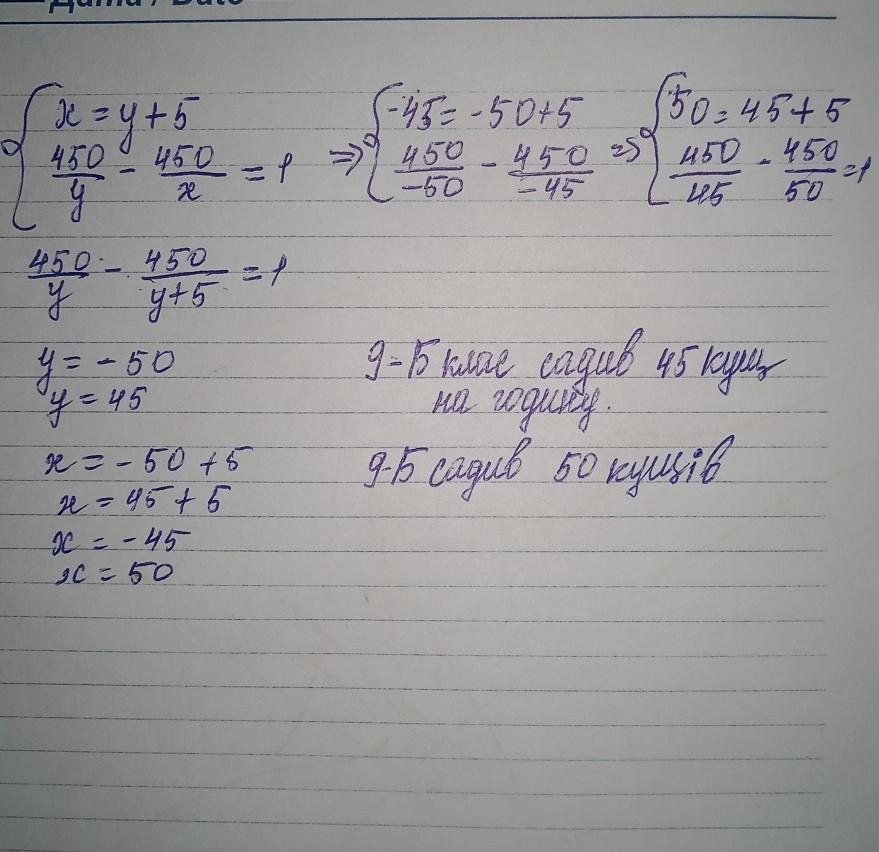 Дата / Date
x = y + 5
450/y - 450/x = 1
=>
-45 = -50 + 5
450/-50 - 450/-45
=>
50 = 45 + 5
450/45 - 450/50 = 1
450/y - 450/y+5 = 1
y = - 50
y = 45
x = - 50 + 5
x = 45 + 5
x = - 45
x = 50
9-Б клас садив 45 кущ
на годину.
9-Б садив 50 кущів